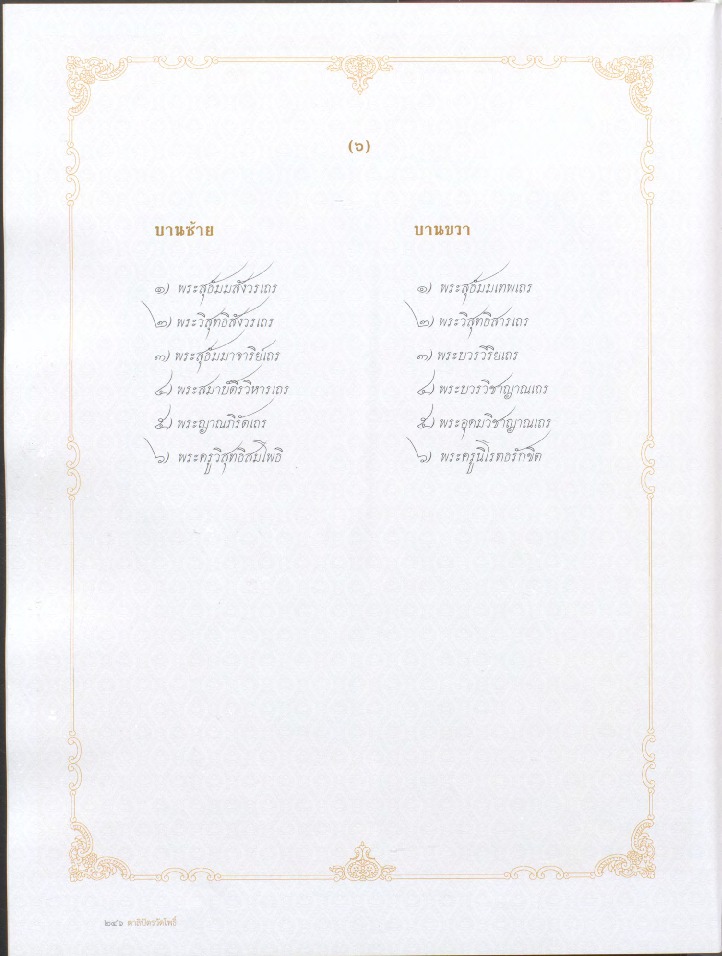 (๖)
บานซ้าย
๑) พระสุธัมมสังวรเถร
๒) พระวิสุทธิสังวรเถร
๓) พระสุธัมมาจาริย์เถร
๔) พระสมาบัติรวิหารเถร
๕) พระญาณภิรัตเถร
๖) พระครูวิสุทธิสมโพธิ
บานขวา
๑) พระสุธัมมเทพเถร
๒) พระวิสุทธิสารเถร
๓) พระบวรวิริยเถร
๔) พระบวรวิชาญาณเถร
๕) พระอุดมวิชาญาณเถร
๖) พระครูนิโรตธรักขิต
๒๔๖ ตาลิปัตรวัดโพธิ์